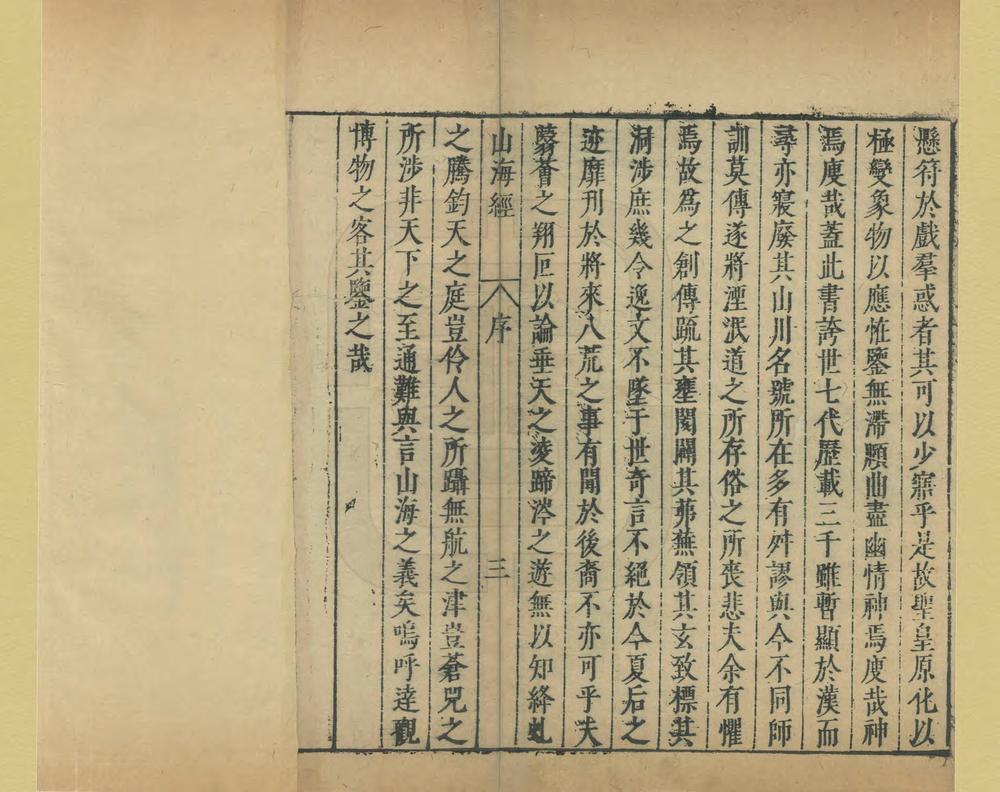 懸符於戲羣惑者其可以少寤乎是故聖皇原化以
極變象物以應怪鑒無滯賾曲盡幽情神焉廋哉神
焉廋哉蓋此書誇世七代歷載三千雖暫顯於漢而
尋亦寢廢其山川名號所在多有舛謬與今不同師
訓莫傳遂將湮泯道之所存俗之所喪悲夫余有懼
焉故為之創傳疏其壅閡闢其茀蕪領其玄致標其
洞涉庶幾令逸文不墜于世奇言不絕於今夏后之
迹靡刋於將來八荒之事有聞於後裔不亦可乎夫
蘙薈之翔叵以論垂天之凌蹄涔之遊無以知絳虬
山海經 序 三
之騰鈞天之庭豈伶人之所躡無航之津豈蒼兕之
所涉非天下之至通難與言山海之義矣嗚呼達觀
博物之客其鑒之哉